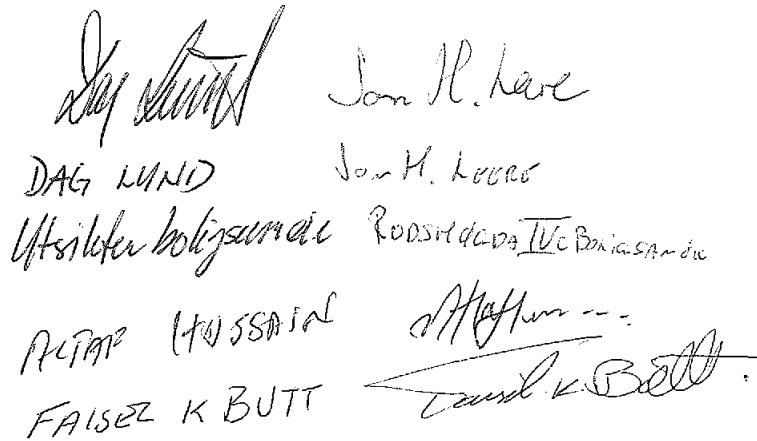 Dag Lund Jon H. Leere
DAG LUND Jon H. LEERE
Utsikten boligsameie IV Boligsameie
ALTAF HUSSAIN
FAISEL K BUTT Faisel K. Butt.